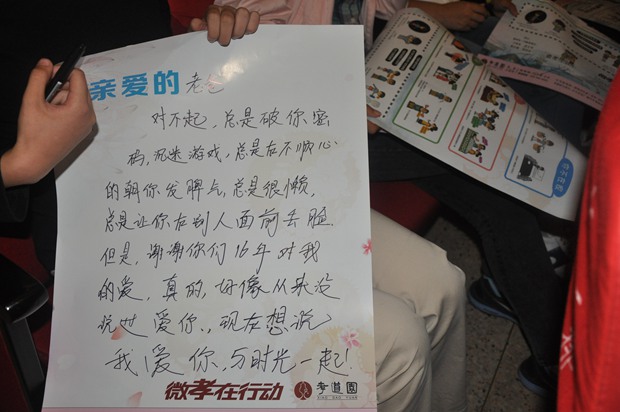 亲爱的 老爸
对不起,总是破你密
码,沉迷游戏,总是在不顺心
的朝你发脾气,总是很懒,
总是让你在别人面前丢脸.
但是,谢谢你们16年对我
的爱,真的,好像从来没
说过爱你,现在想说
我爱你,与时光一起!
微孝在行动 孝道圆
XIAO DAO YUAN